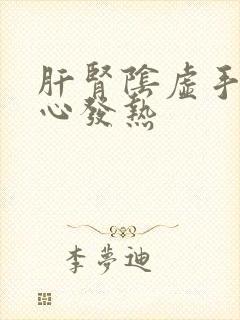 肝腎陰虛手
心發熱
李夢迪